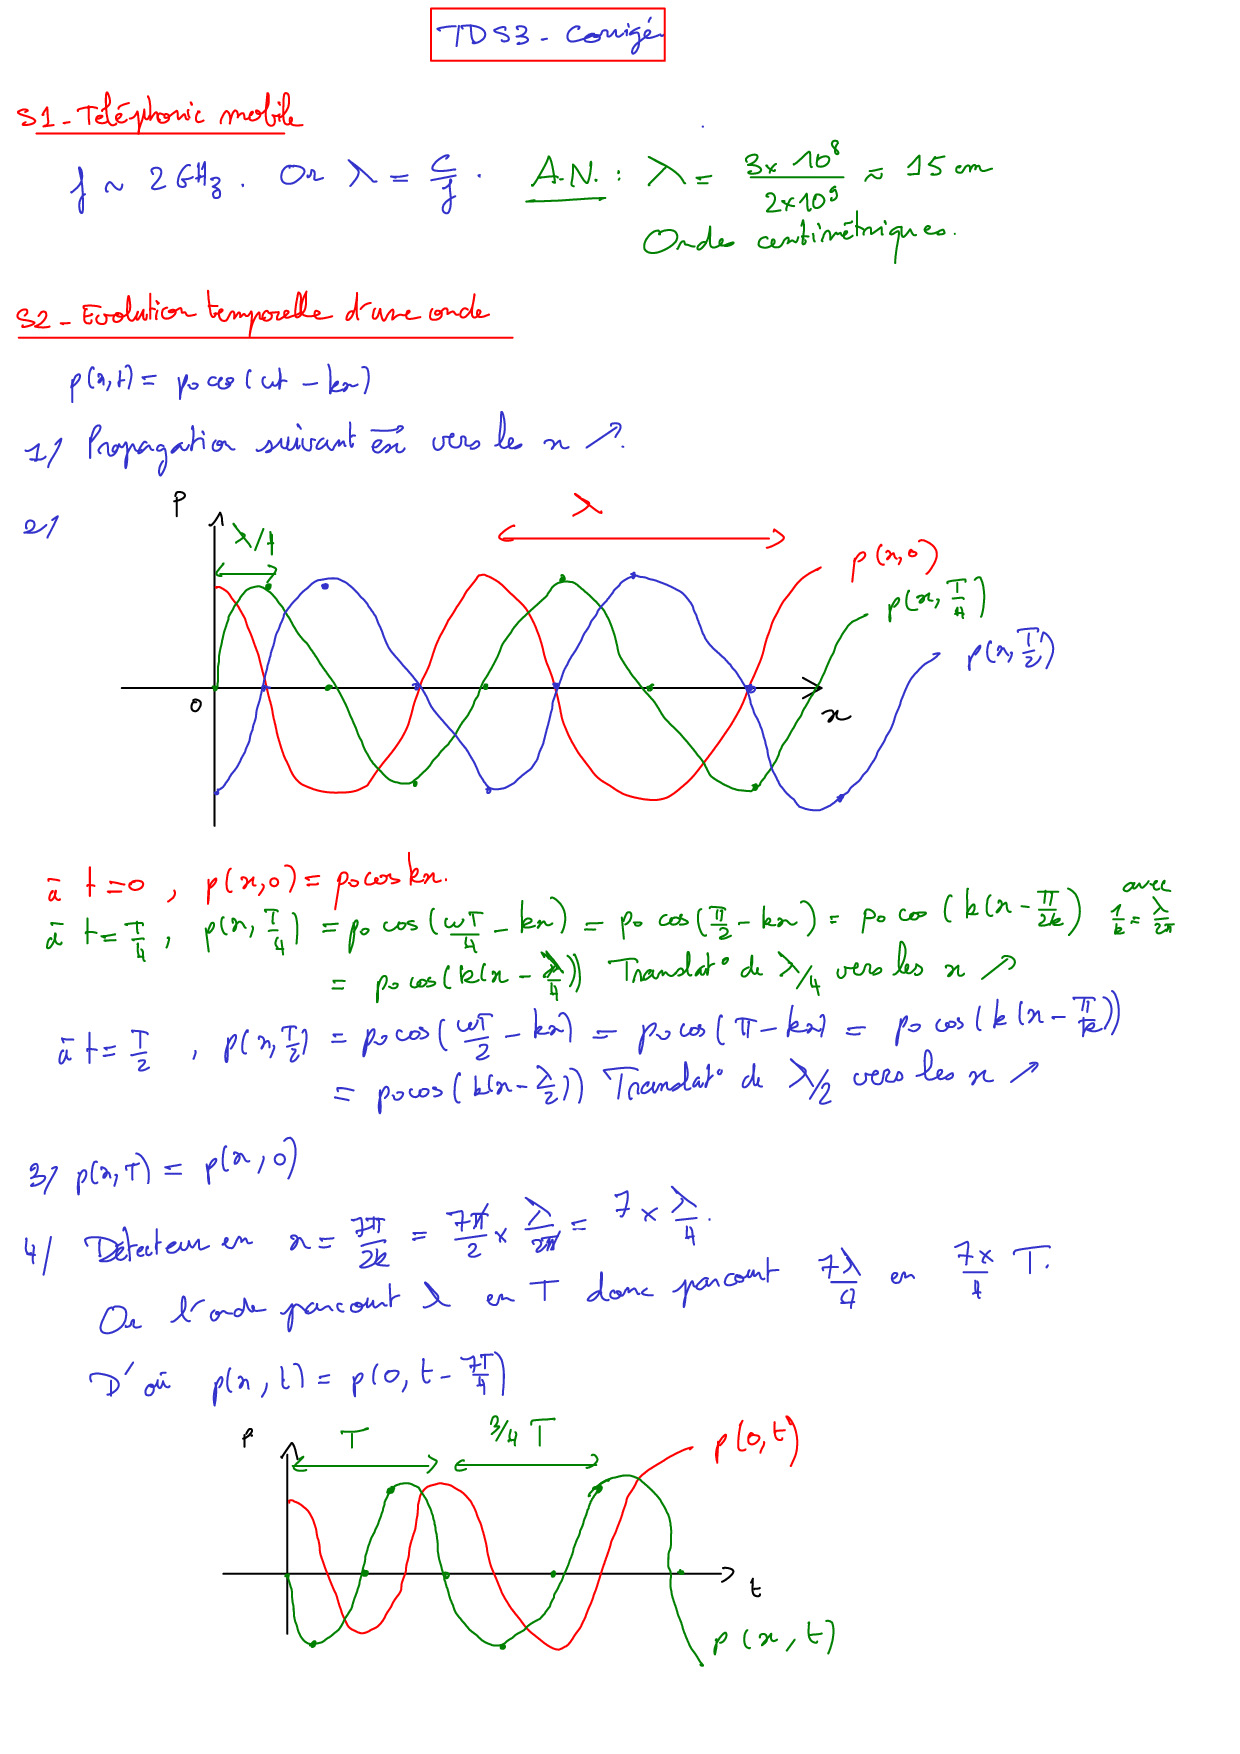 TD S3 - Corrigé
S1 - Téléphonie mobile
f ~ 2 GHz. Or λ = c/f. A.N. : λ = (3 × 10⁸)/(2 × 10⁹) ≈ 15 cm
Ondes centimétriques.
S2 - Evolution temporelle d'une onde
p(x,t) = p₀ cos(ωt - kx)
1/ Propagation suivant e⃗x vers les x ↗.
2/
P
λ/4
λ
p(x,0)
p(x, T/4)
p(x, T/2)
0
x
à t = 0, p(x,0) = p₀ cos kx.
à t = T/4, p(x, T/4) = p₀ cos(ωT/4 - kx) = p₀ cos(π/2 - kx) = p₀ cos(k(x - π/2k)) avec 1/k = λ/2π
= p₀ cos(k(x - λ/4)) Translat° de λ/4 vers les x ↗
à t = T/2, p(x, T/2) = p₀ cos(ωT/2 - kx) = p₀ cos(π - kx) = p₀ cos(k(x - π/k))
= p₀ cos(k(x - λ/2)) Translat° de λ/2 vers les x ↗
3/ p(x,T) = p(x,0)
4/ Détecteur en x = 7π/2k = 7π/2 × λ/2π = 7 × λ/4.
Or l'onde parcourt λ en T donc parcourt 7λ/4 en 7×/4 T.
D'où p(x,t) = p(0, t - 7T/4)
P
T
3/4 T
p(0,t)
t
p(x,t)